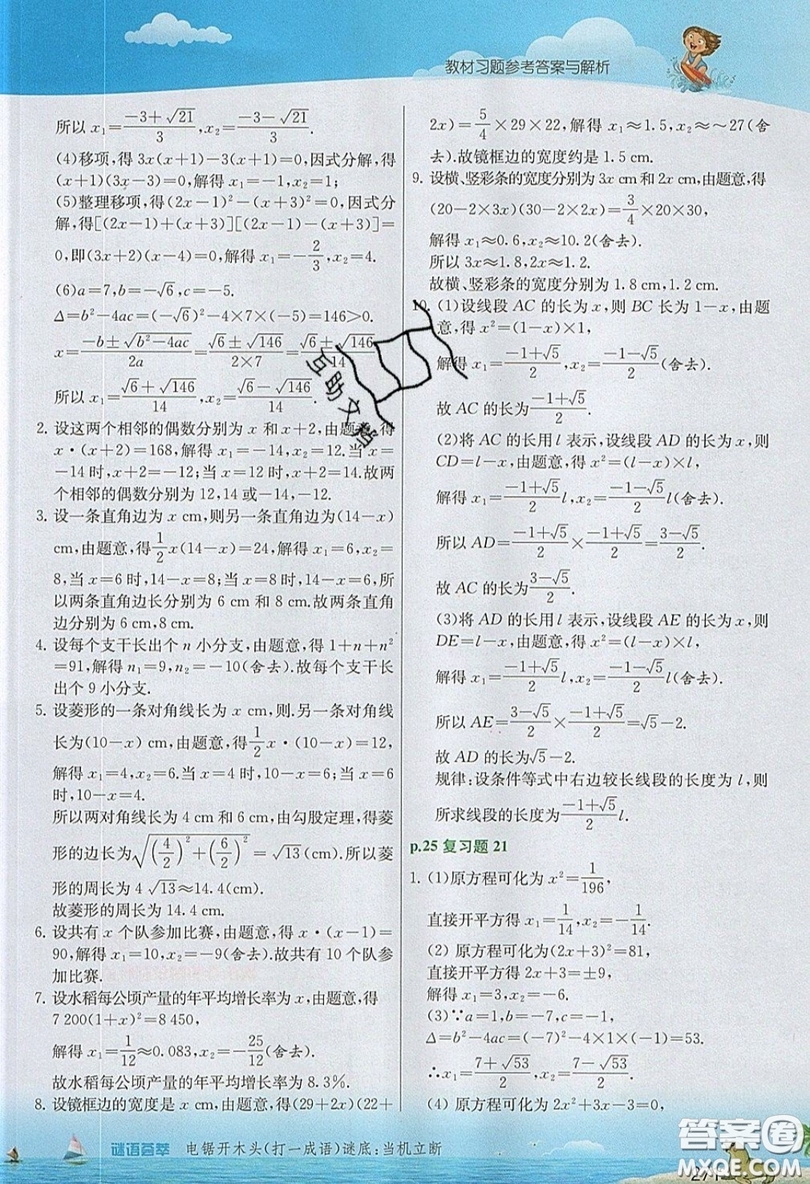 教材习题参考答案与解析
所以 x₁=(-3+√21)/3, x₂=(-3-√21)/3.
(4)移项,得 3x(x+1)-3(x+1)=0,因式分解,得
(x+1)(3x-3)=0,解得 x₁=-1,x₂=1;
(5)整理移项,得(2x-1)²-(x+3)²=0,因式分
解,得[(2x-1)+(x+3)][(2x-1)-(x+3)]=
0,即(3x+2)(x-4)=0,解得 x₁=-2/3,x₂=4.
(6)a=7,b=-√6,c=-5.
Δ=b²-4ac=(-√6)²-4×7×(-5)=146>0.
x=(-b±√(b²-4ac))/2a=(√6±√146)/(2×7)=(√6±√146)/14
所以 x₁=(√6+√146)/14,x₂=(√6-√146)/14.
2. 设这两个相邻的偶数分别为 x 和 x+2,由题意,得
x·(x+2)=168,解得 x₁=-14,x₂=12.当 x=
-14 时,x+2=-12;当 x=12 时,x+2=14.故两
个相邻的偶数分别为 12,14 或-14,-12.
3. 设一条直角边为 x cm,则另一条直角边为(14-x)
cm,由题意,得 1/2 x(14-x)=24,解得 x₁=6,x₂=
8,当 x=6 时,14-x=8;当 x=8 时,14-x=6,所
以两条直角边长分别为 6 cm 和 8 cm.故两条直角
边分别为 6 cm,8 cm.
4. 设每个支干长出个 n 小分支,由题意,得 1+n+n²
=91,解得 n₁=9,n₂=-10(舍去).故每个支干长
出个 9 小分支.
5. 设菱形的一条对角线长为 x cm,则.另一条对角线
长为(10-x) cm,由题意,得 1/2 x·(10-x)=12,
解得 x₁=4,x₂=6.当 x=4 时,10-x=6;当 x=6
时,10-x=4.
所以两对角线长为 4 cm 和 6 cm,由勾股定理,得菱
形的边长为√((4/2)²+(6/2)²)=√13(cm).所以菱
形的周长为 4√13≈14.4(cm).
故菱形的周长为 14.4 cm.
6. 设共有 x 个队参加比赛,由题意,得 x·(x-1)=
90,解得 x₁=10,x₂=-9(舍去).故共有 10 个队参
加比赛.
7. 设水稻每公顷产量的年平均增长率为 x,由题意,得
7 200(1+x)²=8 450,
解得 x₁=1/12≈0.083,x₂=-25/12(舍去).
故水稻每公顷产量的年平均增长率为 8.3%.
8. 设镜框边的宽度是 x cm,由题意,得(29+2x)(22+
2x)=5/4×29×22,解得 x₁≈1.5,x₂≈~27(舍
去).故镜框边的宽度约是 1.5 cm.
9. 设横、竖彩条的宽度分别为 3x cm 和 2x cm,由题意,得
(20-2×3x)(30-2×2x)=3/4×20×30,
解得 x₁≈0.6,x₂≈10.2(舍去).
所以 3x≈1.8,2x≈1.2.
故横、竖彩条的宽度分别为 1.8 cm,1.2 cm.
10. (1)设线段 AC 的长为 x,则 BC 长为 1-x,由题
意,得 x²=(1-x)×1,
解得 x₁=(-1+√5)/2,x₂=(-1-√5)/2(舍去).
故 AC 的长为(-1+√5)/2.
(2)将 AC 的长用 l 表示,设线段 AD 的长为 x,则
CD=l-x,由题意,得 x²=(l-x)×l,
解得 x₁=(-1+√5)/2 l,x₂=(-1-√5)/2 l(舍去).
所以 AD=(-1+√5)/2×(-1+√5)/2=(3-√5)/2.
故 AC 的长为(3-√5)/2.
(3)将 AD 的长用 l 表示,设线段 AE 的长为 x,则
DE=l-x,由题意,得 x²=(l-x)×l,
解得 x₁=(-1+√5)/2 l,x₂=(-1-√5)/2 l(舍去).
所以 AE=(3-√5)/2×(-1+√5)/2=√5-2.
故 AD 的长为√5-2.
规律:设条件等式中右边较长线段的长度为 l,则
所求线段的长度为(-1+√5)/2 l.
p.25 复习题 21
1. (1)原方程可化为 x²=1/196,
直接开平方得 x₁=1/14,x₂=-1/14.
(2) 原方程可化为(2x+3)²=81,
直接开平方得 2x+3=±9,
解得 x₁=3,x₂=-6.
(3)∵a=1,b=-7,c=-1,
Δ=b²-4ac=(-7)²-4×1×(-1)=53.
∴x₁=(7+√53)/2,x₂=(7-√53)/2.
(4) 原方程可化为 2x²+3x-3=0
谜语荟萃 电锯开木头(打一成语)谜底:当机立断
互助文档
答案圈